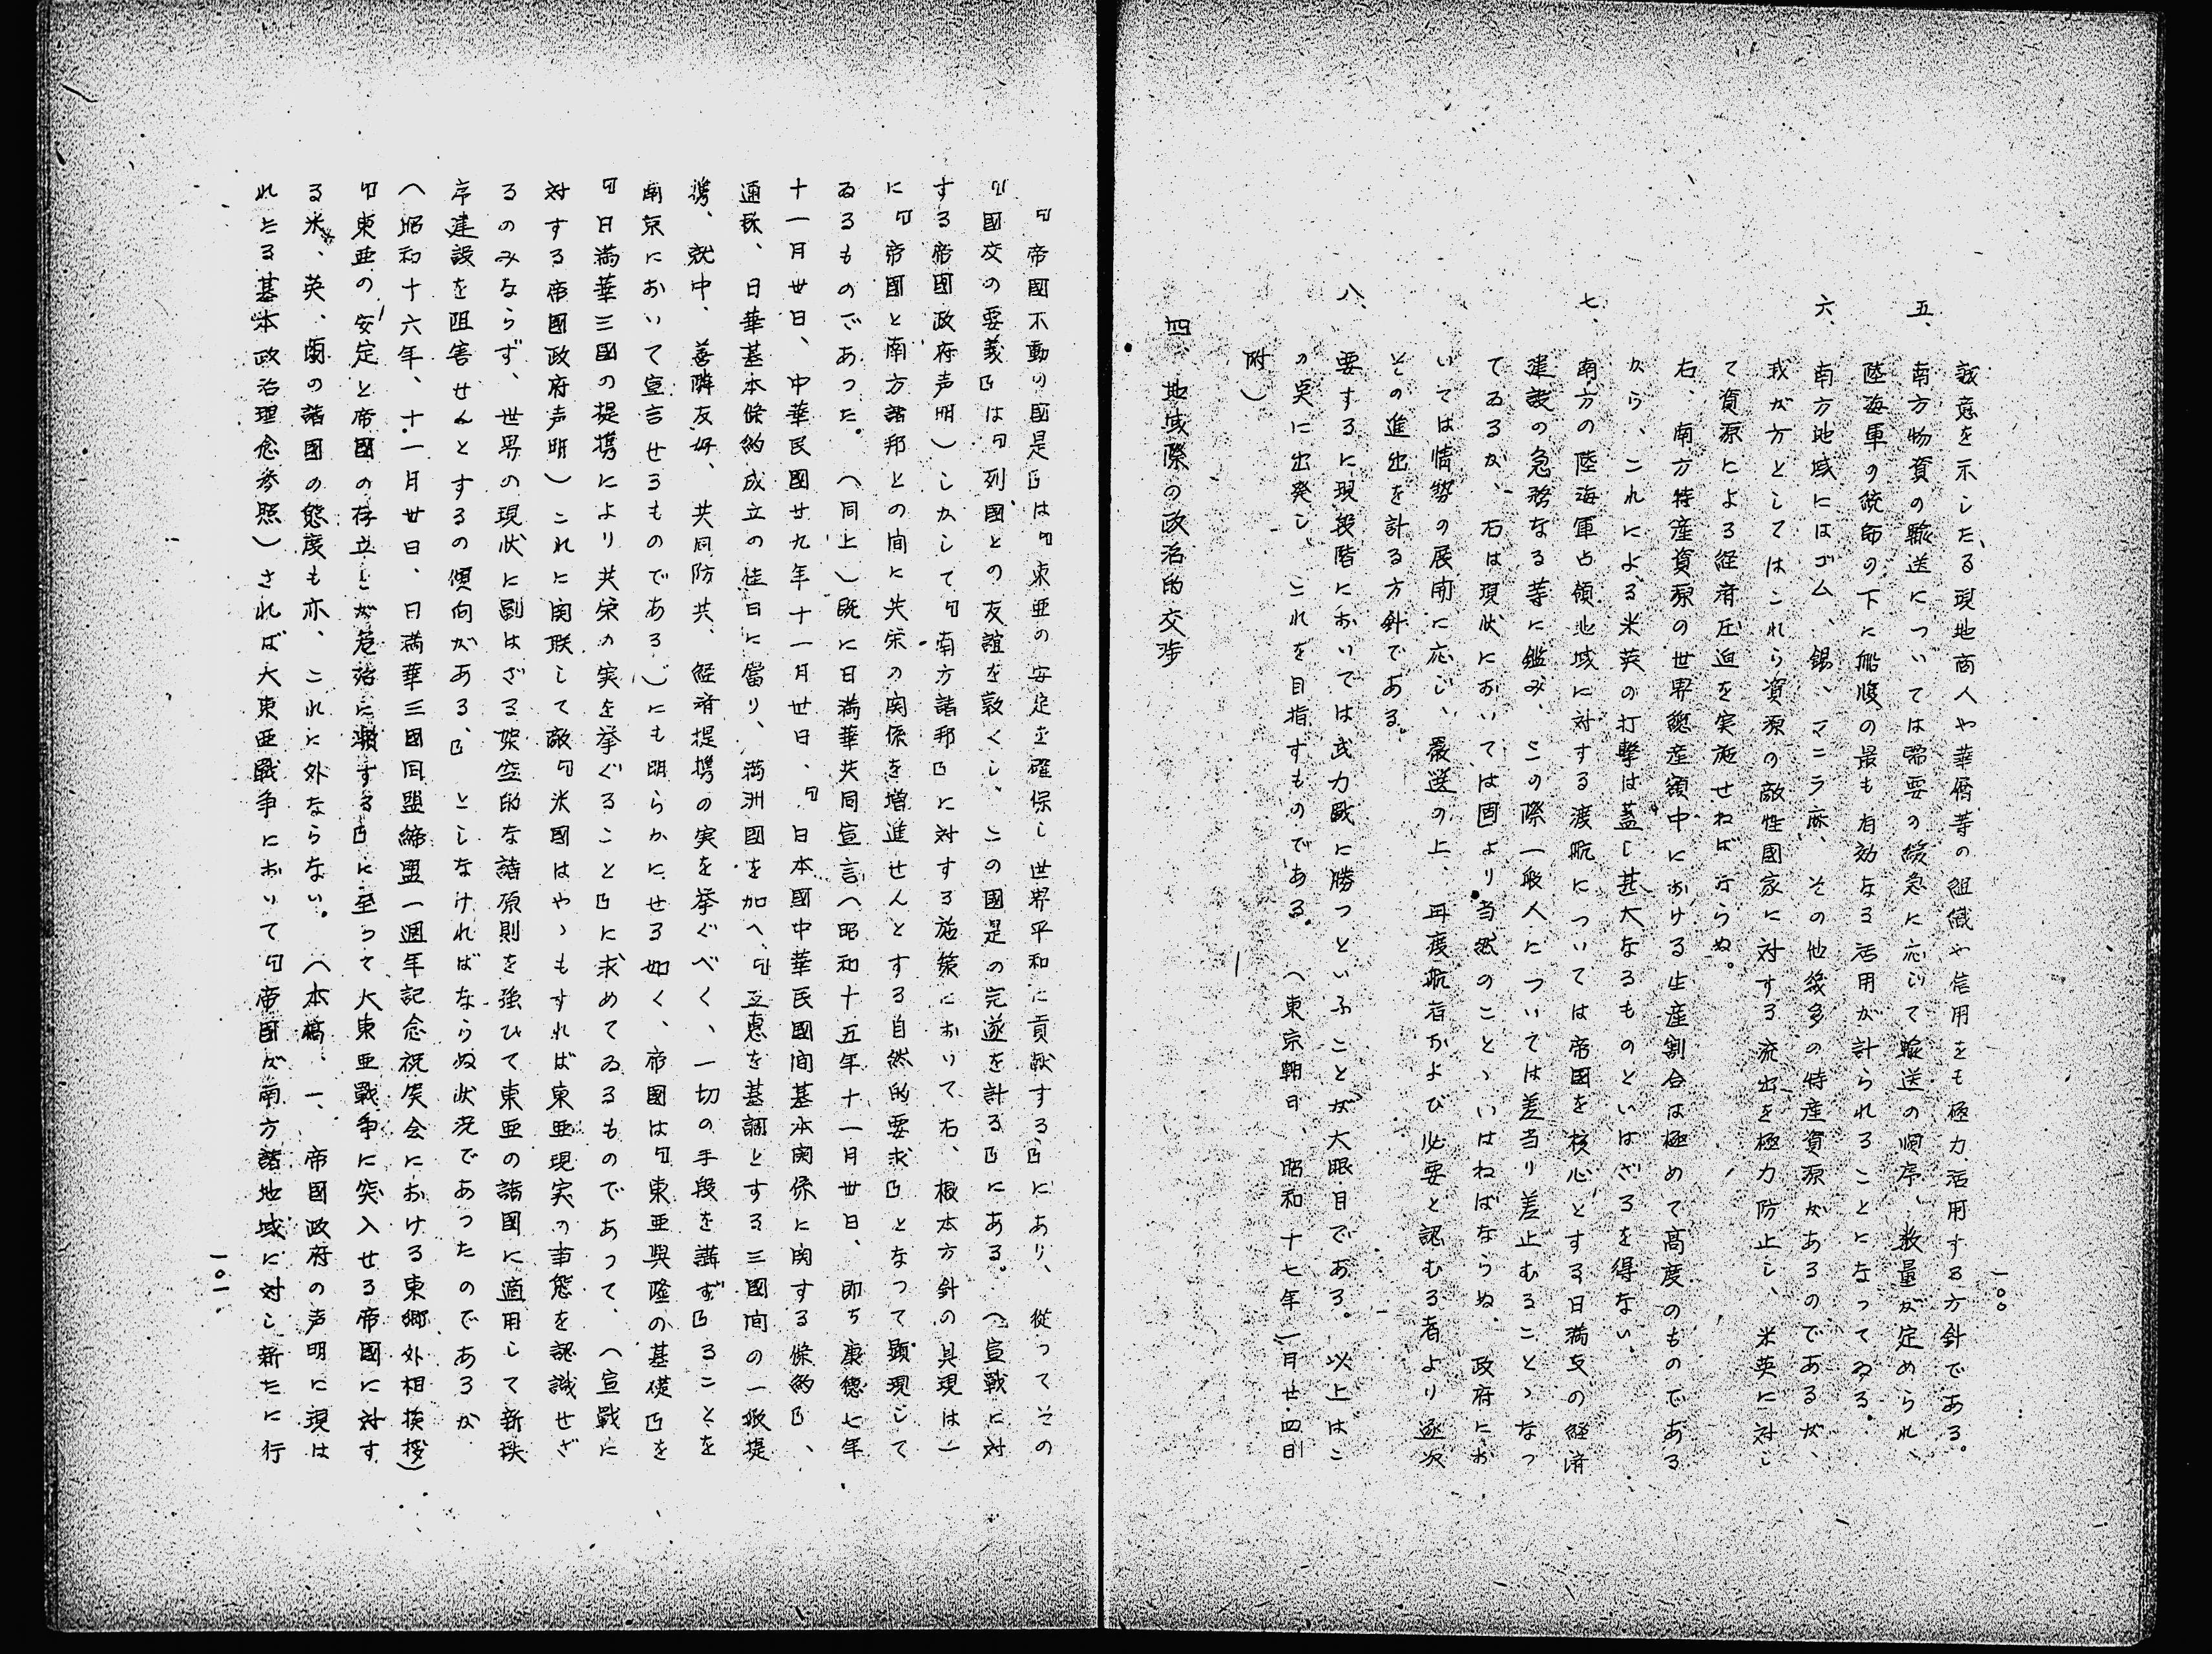 一〇〇
誠意を示したる現地商人や華僑等の組織や信用をも極力活用する方針である。
五、南方物資の輸送については需要の緩急に応じて輸送の順序、数量が定められ、
陸海軍の統帥の下に船腹の最も有効なる活用が計られることになってゐる。
六、南方地域にはゴム、錫、マニラ麻、その他幾多の特産資源があるのであるが、
我が方としてはこれら資源の敵性國家に対する流出を極力防止し、米英に対し
て資源による経済圧迫を実施せねばならぬ。
右、南方特産資源の世界総産額中における生産割合は極めて高度のものである
から、これによる米英の打撃は蓋し甚大なるものといはざるを得ない。
七、南方の陸海軍占領地域に対する渡航については帝国を核心とする日満支の経済
建設の急務なる等に鑑み、この際一般人については差当り差止むることゝなつ
てゐるが、右は現状においては固より当然のことゝいはねばならぬ。政府にお
いては情勢の展開に応じ、厳選の上、再渡航者および必要と認むる者より逐次
その進出を計る方針である。
八、要するに現段階においては武力戰に勝つといふことが大眼目である。以上はこ
の点に出発し、これを目指すものである。(東京朝日、昭和十七年一月廿四日
附)
四、地域際の政治的交渉
『帝國不動の國是』は『東亜の安定を確保し世界平和に貢献する』にあり、從つてその
『國交の要義』は『列國との友誼を敦くし、この國是の完遂を計る』にある。(宣戰に対
する帝國政府声明)しかして『南方諸邦』に対する施策において右、根本方針の具現は一
に『帝國と南方諸邦との間に共栄の関係を増進せんとする自然的要求』となつて顕現して
ゐるものであつた。(同上)既に日満華共同宣言(昭和十五年十一月廿日、即ち康徳七年
十一月廿日、中華民國廿九年十一月廿日、『日本國中華民國間基本関係に関する條約』、
通称、日華基本條約成立の佳日に當り、満洲國を加へ、『互惠を基調とする三國間の一般提
携、就中、善隣友好、共同防共、経済提携の実を挙ぐべく、一切の手段を講ず』ることを
南京において宣言せるものである)にも明らかにせる如く、帝國は『東亜興隆の基礎』を
『日満華三國の提携により共栄の実を挙ぐること』に求めてゐるものであつて、(宣戰に
対する帝國政府声明)これに関联して敵『米國はやゝもすれば東亜現実の事態を認識せざ
るのみならず、世界の現状に副はざる架空的な諸原則を強ひて東亜の諸國に適用して新秩
序建設を阻害せんとするの傾向がある、』としなければならぬ状況であつたのであるが
(昭和十六年、十一月廿日、日満華三國同盟締盟一週年記念祝賀会における東郷外相挨拶)
『東亜の安定と帝國の存立とが危殆に瀕する』に至つて大東亜戰争に突入せる帝國に対す
る米、英、蘭の諸國の態度も亦、これに外ならない。(本稿、一、帝國政府の声明に現は
れたる基本政治理念参照)されば大東亜戰争において『帝国が南方諸地域に対し新たに行
一〇一